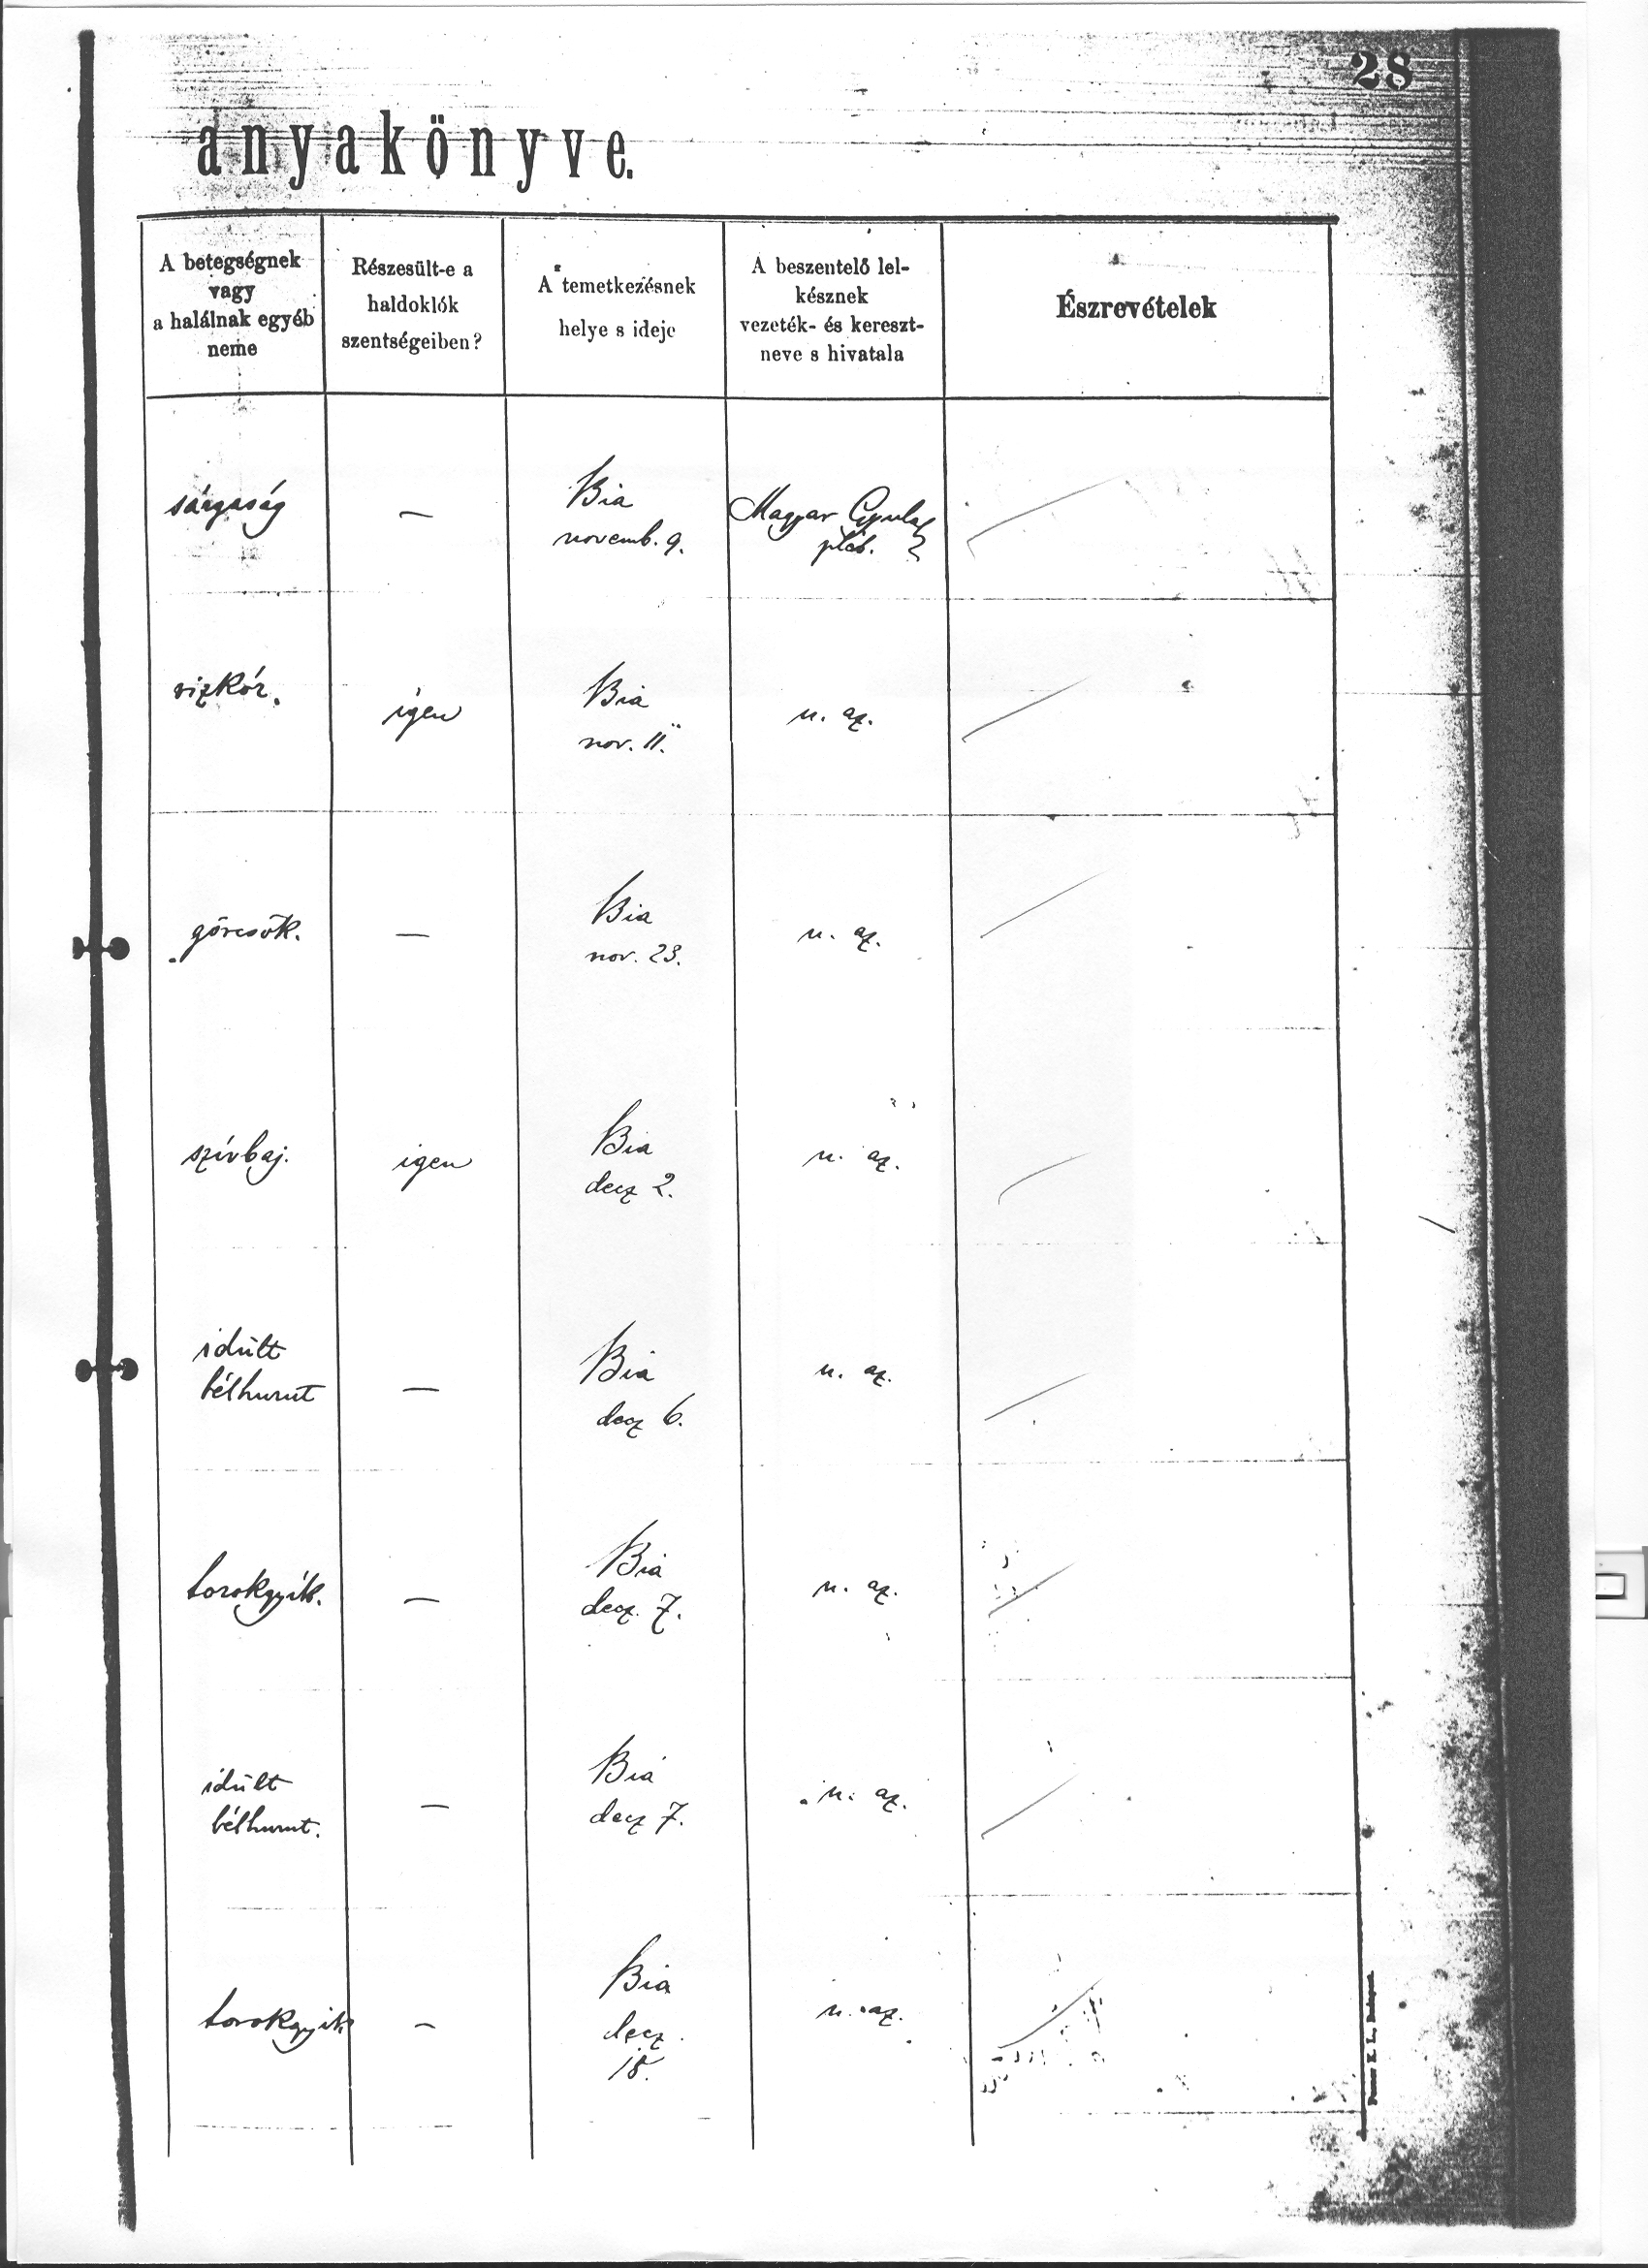 28
anyakönyve.
A betegségnek
vagy
a halálnak egyéb
neme
Részesült-e a
haldoklók
szentségeiben?
A temetkezésnek
helye s ideje
A beszentelő lel-
késznek
vezeték- és kereszt-
neve s hivatala
Észrevételek
sárgaság
—
Bia
novemb. 9.
Magyar Gyula
pléb.
vizkór.
igen
Bia
nov. 11.
u. az.
görcsök.
—
Bia
nov. 23.
u. az.
szívbaj.
igen
Bia
decz 2.
u. az.
idült
bélhurut
—
Bia
decz 6.
u. az.
torokgyík.
—
Bia
decz. 7.
u. az.
idült
bélhurut.
—
Bia
decz 7.
u. az.
torokgyik
—
Bia
decz.
18.
u. az.
L., Budapest